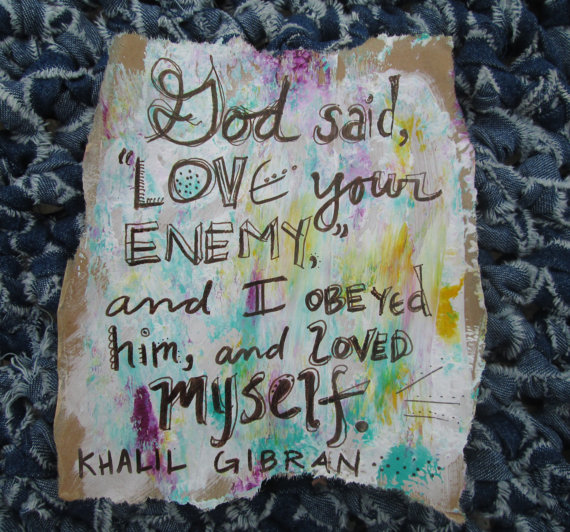 God said,
"LOVE your
ENEMY,"
and I OBEYED
him, and LOVED
myself.
KHALIL GIBRAN